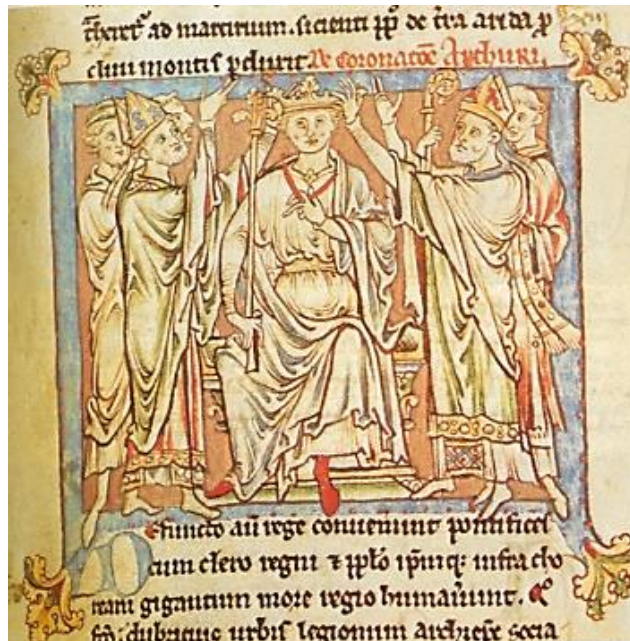 cheret᷑ ad martirium. sicienti pp̄ de t̄ra arida ꝑ
cliuū montis ꝓduxit. De coronacōe Arthuri.
Defuncto aū rege conuenerunt pontifices
cum clero regni ⁊ pp̄lo ip̄mq; infra cho
ream gigantum more regio humauerunt. Qͦ
fc̄o. dubricius urbis legionum archiep̄c socia